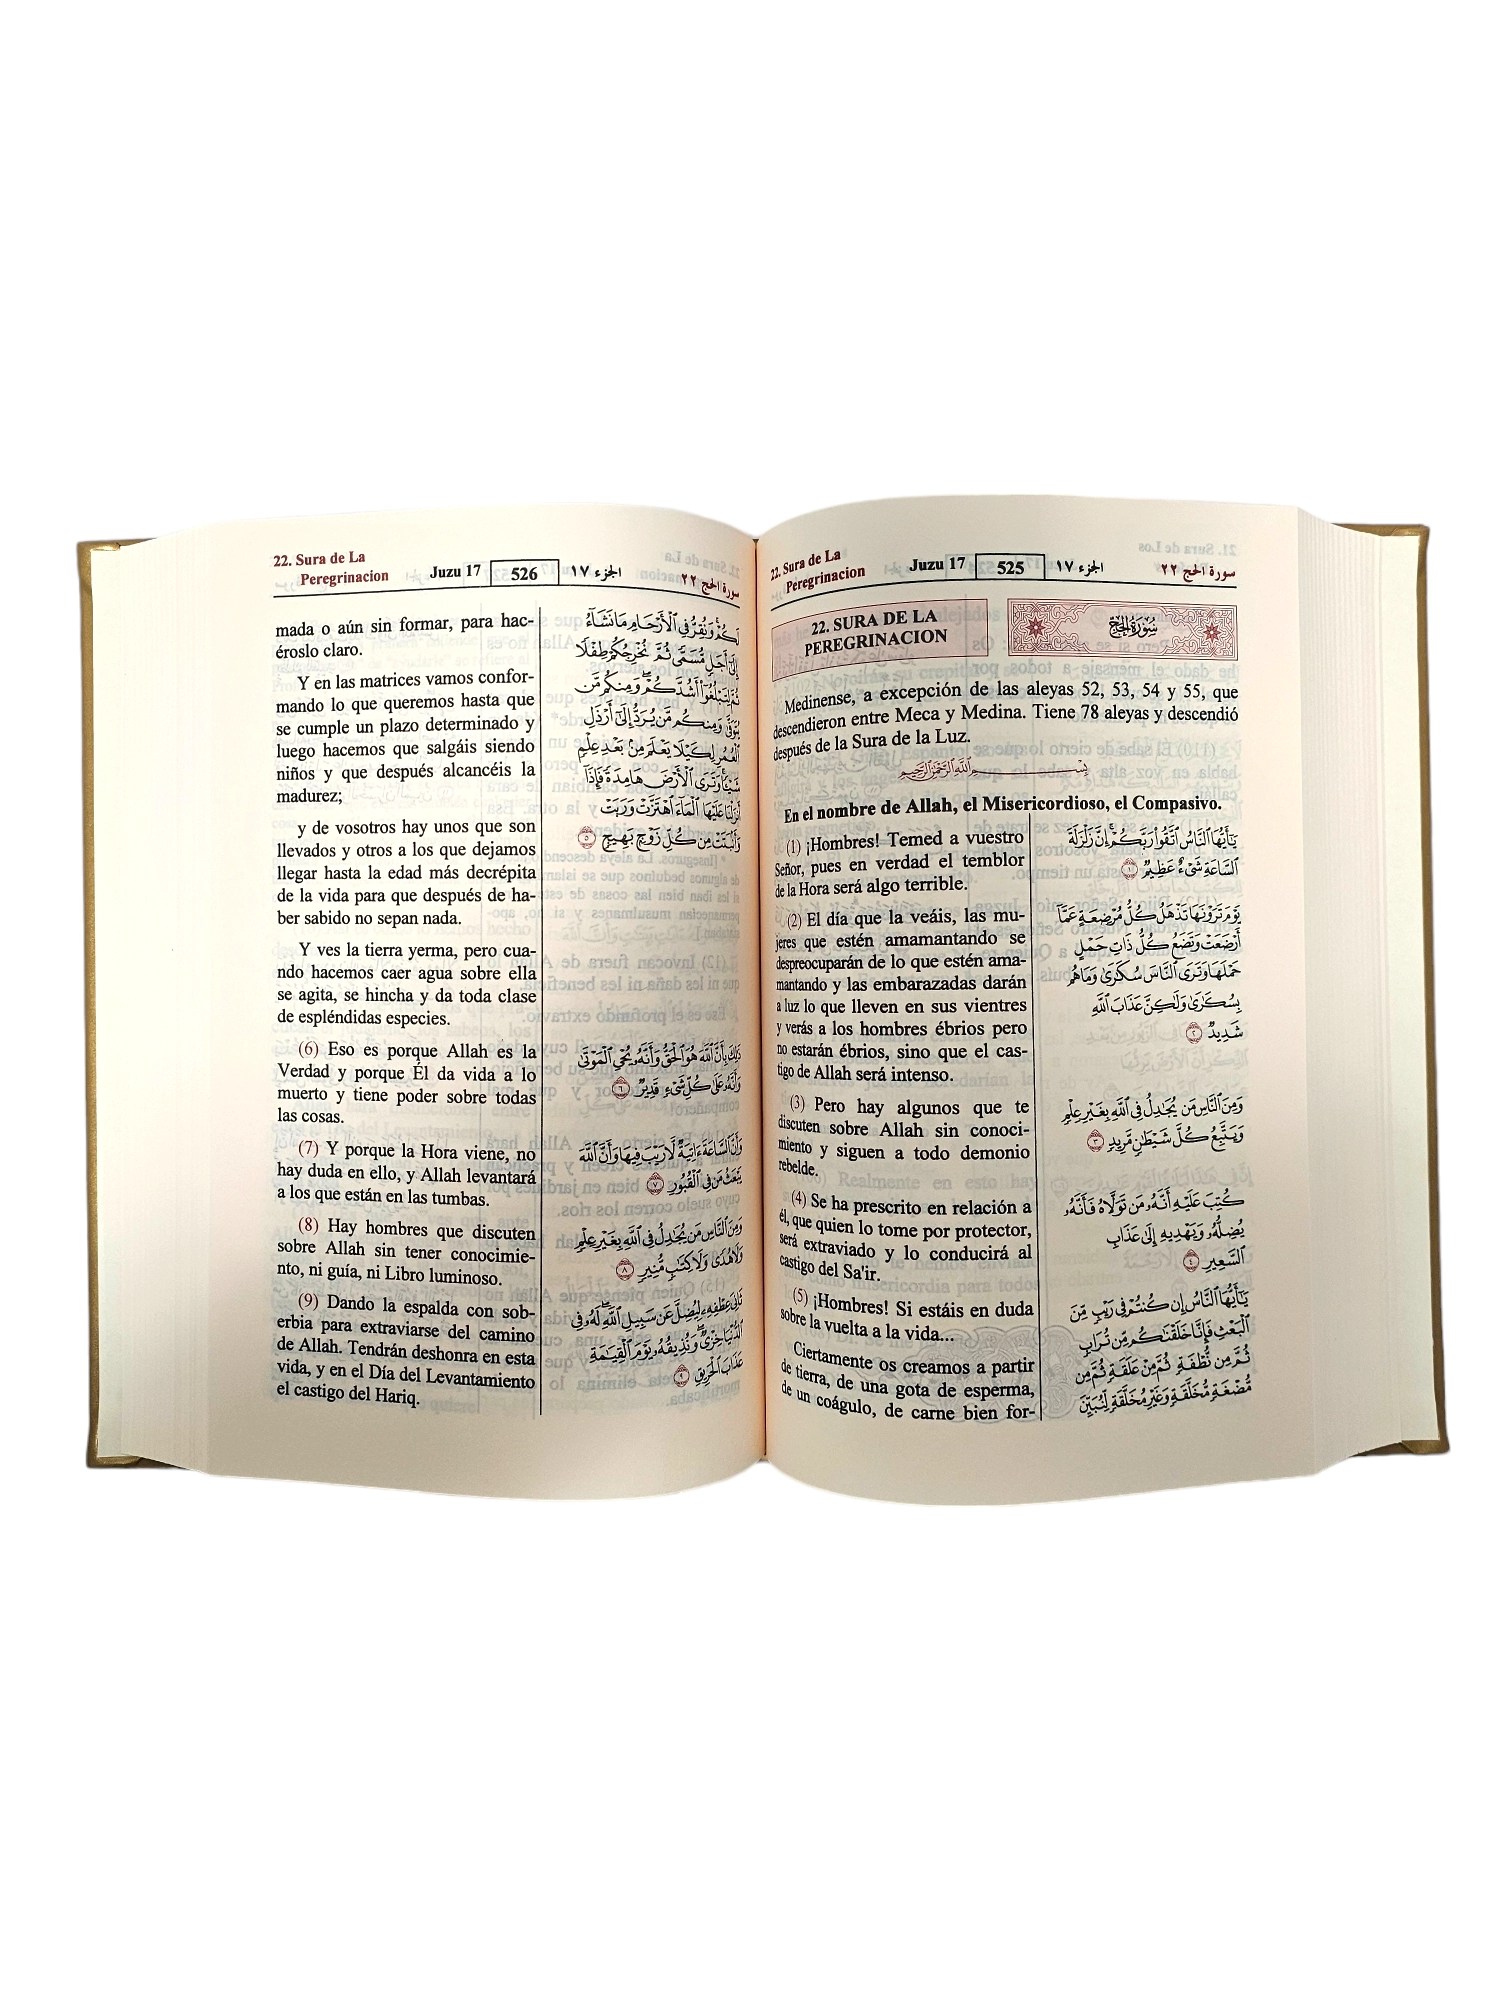 22. Sura de La
Peregrinacion
Juzu 17
525
الجزء ١٧
سورة الحج ٢٢
22. SURA DE LA
PEREGRINACION
سُورَةُ الحَجِّ
Medinense, a excepción de las aleyas 52, 53, 54 y 55, que
descendieron entre Meca y Medina. Tiene 78 aleyas y descendió
después de la Sura de la Luz.
بِسْمِ اللَّهِ الرَّحْمَٰنِ الرَّحِيمِ
En el nombre de Allah, el Misericordioso, el Compasivo.
(1) ¡Hombres! Temed a vuestro
Señor, pues en verdad el temblor
de la Hora será algo terrible.
(2) El día que la veáis, las mu-
jeres que estén amamantando se
despreocuparán de lo que estén ama-
mantando y las embarazadas darán
a luz lo que lleven en sus vientres
y verás a los hombres ébrios pero
no estarán ébrios, sino que el cas-
tigo de Allah será intenso.
(3) Pero hay algunos que te
discuten sobre Allah sin conoci-
miento y siguen a todo demonio
rebelde.
(4) Se ha prescrito en relación a
él, que quien lo tome por protector,
será extraviado y lo conducirá al
castigo del Sa'ir.
(5) ¡Hombres! Si estáis en duda
sobre la vuelta a la vida...
Ciertamente os creamos a partir
de tierra, de una gota de esperma,
de un coágulo, de carne bien for-
يَٰٓأَيُّهَا ٱلنَّاسُ ٱتَّقُوا۟ رَبَّكُمْ إِنَّ زَلْزَلَةَ
ٱلسَّاعَةِ شَىْءٌ عَظِيمٌ ١
يَوْمَ تَرَوْنَهَا تَذْهَلُ كُلُّ مُرْضِعَةٍ عَمَّآ
أَرْضَعَتْ وَتَضَعُ كُلُّ ذَاتِ حَمْلٍ
حَمْلَهَا وَتَرَى ٱلنَّاسَ سُكَٰرَىٰ وَمَا هُم
بِسُكَٰرَىٰ وَلَٰكِنَّ عَذَابَ ٱللَّهِ
شَدِيدٌ ٢
وَمِنَ ٱلنَّاسِ مَن يُجَٰدِلُ فِى ٱللَّهِ بِغَيْرِ عِلْمٍ
وَيَتَّبِعُ كُلَّ شَيْطَٰنٍ مَّرِيدٍ ٣
كُتِبَ عَلَيْهِ أَنَّهُۥ مَن تَوَلَّاهُ فَأَنَّهُۥ
يُضِلُّهُۥ وَيَهْدِيهِ إِلَىٰ عَذَابِ
ٱلسَّعِيرِ ٤
يَٰٓأَيُّهَا ٱلنَّاسُ إِن كُنتُمْ فِى رَيْبٍ مِّنَ
ٱلْبَعْثِ فَإِنَّا خَلَقْنَٰكُم مِّن تُرَابٍ
ثُمَّ مِن نُّطْفَةٍ ثُمَّ مِنْ عَلَقَةٍ ثُمَّ مِن
مُّضْغَةٍ مُّخَلَّقَةٍ وَغَيْرِ مُخَلَّقَةٍ لِّنُبَيِّنَ
22. Sura de La
Peregrinacion
Juzu 17
526
الجزء ١٧
سورة الحج ٢٢
mada o aún sin formar, para hac-
éroslo claro.
Y en las matrices vamos confor-
mando lo que queremos hasta que
se cumple un plazo determinado y
luego hacemos que salgáis siendo
niños y que después alcancéis la
madurez;
y de vosotros hay unos que son
llevados y otros a los que dejamos
llegar hasta la edad más decrépita
de la vida para que después de ha-
ber sabido no sepan nada.
Y ves la tierra yerma, pero cua-
ndo hacemos caer agua sobre ella
se agita, se hincha y da toda clase
de espléndidas especies.
(6) Eso es porque Allah es la
Verdad y porque Él da vida a lo
muerto y tiene poder sobre todas
las cosas.
(7) Y porque la Hora viene, no
hay duda en ello, y Allah levantará
a los que están en las tumbas.
(8) Hay hombres que discuten
sobre Allah sin tener conocimie-
nto, ni guía, ni Libro luminoso.
(9) Dando la espalda con sob-
erbia para extraviarse del camino
de Allah. Tendrán deshonra en esta
vida, y en el Día del Levantamiento
el castigo del Hariq.
لَكُمْ وَنُقِرُّ فِى ٱلْأَرْحَامِ مَا نَشَآءُ
إِلَىٰٓ أَجَلٍ مُّسَمًّى ثُمَّ نُخْرِجُكُمْ طِفْلًا
ثُمَّ لِتَبْلُغُوٓا۟ أَشُدَّكُمْ وَمِنكُم مَّن
يُتَوَفَّىٰ وَمِنكُم مَّن يُرَدُّ إِلَىٰٓ أَرْذَلِ
ٱلْعُمُرِ لِكَيْلَا يَعْلَمَ مِنۢ بَعْدِ عِلْمٍ
شَيْـًٔا وَتَرَى ٱلْأَرْضَ هَامِدَةً فَإِذَآ
أَنزَلْنَا عَلَيْهَا ٱلْمَآءَ ٱهْتَزَّتْ وَرَبَتْ
وَأَنۢبَتَتْ مِن كُلِّ زَوْجٍۭ بَهِيجٍ ٥
ذَٰلِكَ بِأَنَّ ٱللَّهَ هُوَ ٱلْحَقُّ وَأَنَّهُۥ يُحْىِ ٱلْمَوْتَىٰ
وَأَنَّهُۥ عَلَىٰ كُلِّ شَىْءٍ قَدِيرٌ ٦
وَأَنَّ ٱلسَّاعَةَ ءَاتِيَةٌ لَّا رَيْبَ فِيهَا وَأَنَّ ٱللَّهَ
يَبْعَثُ مَن فِى ٱلْقُبُورِ ٧
وَمِنَ ٱلنَّاسِ مَن يُجَٰدِلُ فِى ٱللَّهِ بِغَيْرِ عِلْمٍ
وَلَا هُدًى وَلَا كِتَٰبٍ مُّنِيرٍ ٨
ثَانِىَ عِطْفِهِۦ لِيُضِلَّ عَن سَبِيلِ ٱللَّهِ لَهُۥ فِى
ٱلدُّنْيَا خِزْىٌ وَنُذِيقُهُۥ يَوْمَ ٱلْقِيَٰمَةِ
عَذَابَ ٱلْحَرِيقِ ٩